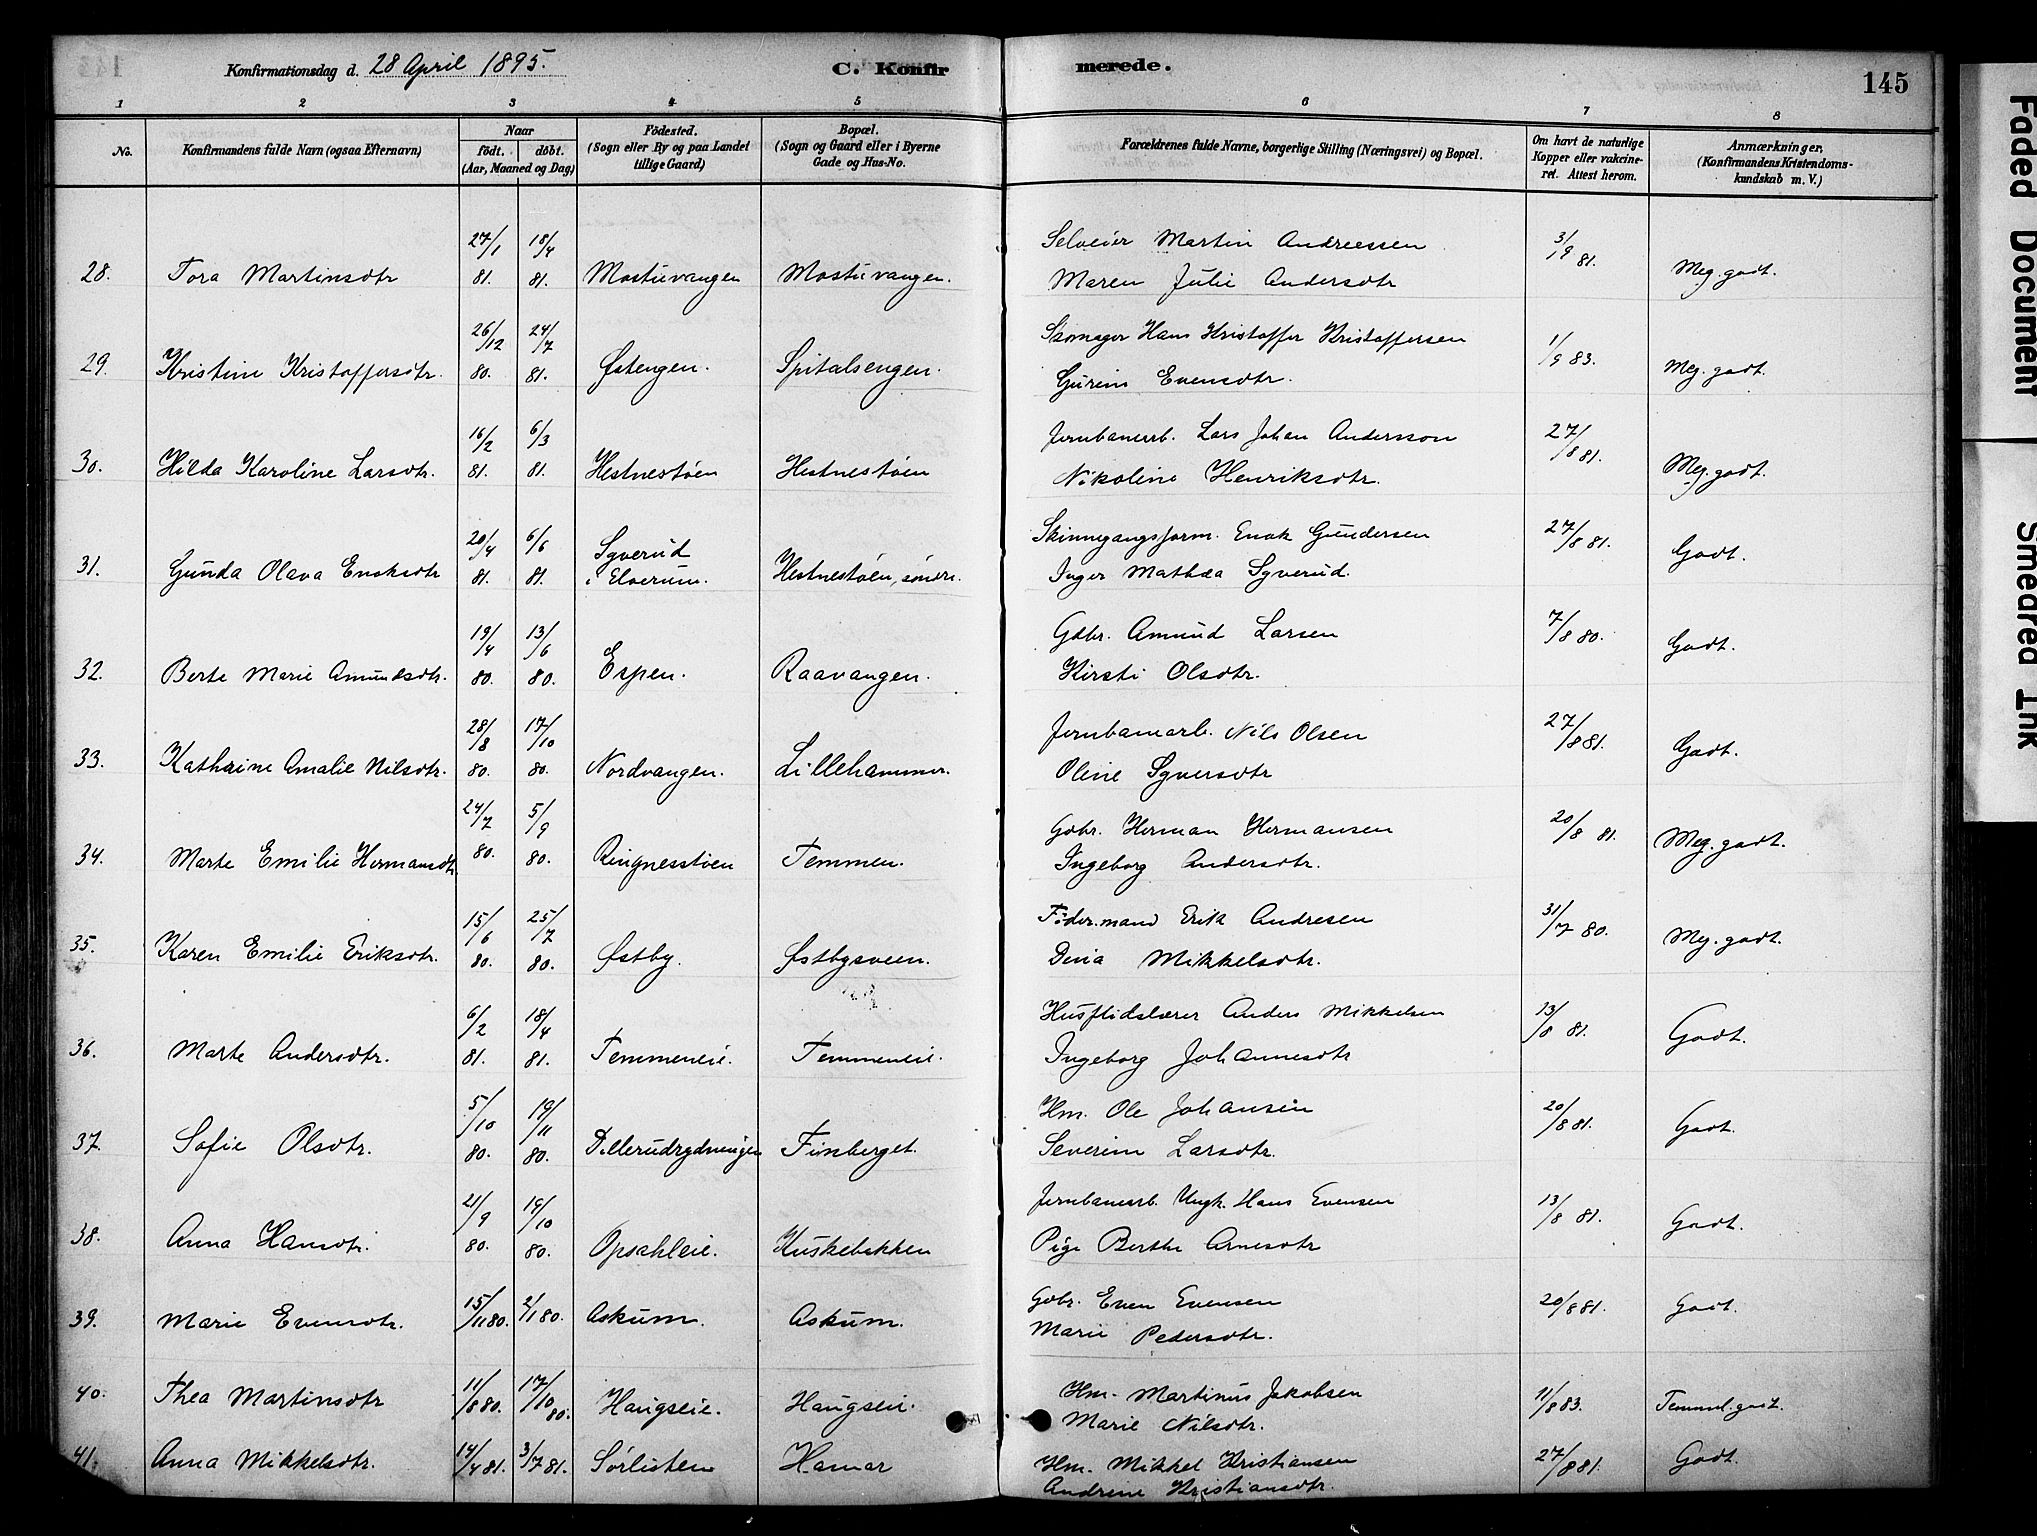 Konfirmationsdag d. 28 April 1895.
C. Konfirmerede.
145
1 2 3 4 5 6 7 8
No. Konfirmandens fulde Navn (ogsaa Efternavn) Naar födt. döbt. (Aar, Maaned og Dag) Födested. (Sogn eller By og paa Landet tillige Gaard) Bopæl. (Sogn og Gaard eller i Byerne Gade og Hus-No. Forældrenes fulde Navne, borgerlige Stilling (Næringsvei) og Bopæl. Om havt de naturlige Kopper eller vakcineret. Attest herom. Anmærkninger. (Konfirmandens Kristendomskundskab m. V.)
28. Tora Martinsdtr 27/1 81. 18/4 81. Mostuvangen Mostuvangen. Selveier Martin Andreessen Maren Julie Andersdtr 3/9 81. Meg. godt.
29. Kristine Kristoffersdtr. 26/12 80. 24/7 81. Østengen. Spitalsengen. Skomager Hans Kristoffer Kristoffersen Gurine Evensdtr. 1/9 83. Meg. godt.
30. Hilda Karoline Larsdtr. 16/2 81. 6/3 81. Hestnestøen Hestnestøen Jernbanearb. Lars Johan Andersson Nikoline Henriksdtr. 27/8 81. Meg. godt.
31. Gunda Olava Enoksdtr 20/4 81. 6/6 81. Syverud i Elverum. Hestnestøen, søndre. Skinnegangsform. Enok Gundersen Inger Mathea Syverud. 27/8 81. Godt.
32. Berte Marie Amundsdtr. 19/4 80. 13/6 80. Espen. Raavangen. Gdbr. Amund Larsen Kirsti Olsdtr. 7/8 80. Godt.
33. Kathrine Amalie Nilsdtr. 28/8 80. 17/10 80. Nordvangen. Lillehammer. Jernbanearb. Nils Olsen Oline Syversdtr 27/8 81. Godt.
34. Marte Emilie Hermansdtr. 24/7 80. 5/9 80. Ringnesstøen Temmen. Gdbr. Herman Hermansen Ingeborg Andersdtr. 20/8 81. Meg. godt.
35. Karen Emilie Eriksdtr. 15/6 80. 25/7 80. Østby. Østbysveen. Føder.mand Erik Andresen Dina Mikkelsdtr. 31/7 80. Meg. godt.
36. Marte Andersdtr. 6/2 81. 18/4 81. Temmeneie. Temmeneie. Husflidslærer Anders Mikkelsen Ingeborg Johannesdtr 13/8 81. Godt.
37. Sofie Olsdtr. 5/10 80. 19/11 80. Dellerudrydningen Finberget. Hm. Ole Johansen Severine Larsdtr. 20/8 81. Godt.
38. Anna Hansdtr. 21/9 80. 19/10 80. Opsahleie. Kuskebakken Jernbanearb. Ungk. Hans Evensen Pige Berthe Arnesdtr 13/8 81. Godt.
39. Marie Evensdtr. 15/11 80. 2/1 80. Askum. Askum. Gdbr. Even Evensen Marie Pedersdtr. 20/8 81. Godt.
40. Thea Martinsdtr 11/8 80. 17/10 80. Haugseie. Haugseie. Hm. Martinus Jakobsen Marie Nilsdtr. 11/8 83. Temmel. godt.
41. Anna Mikkelsdtr. 14/4 81. 3/7 81. Sørlisten Hamar Hm. Mikkel Kristiansen Andrene Kristiansdtr. 27/8 81. Godt.
Faded Document
Smeared Ink